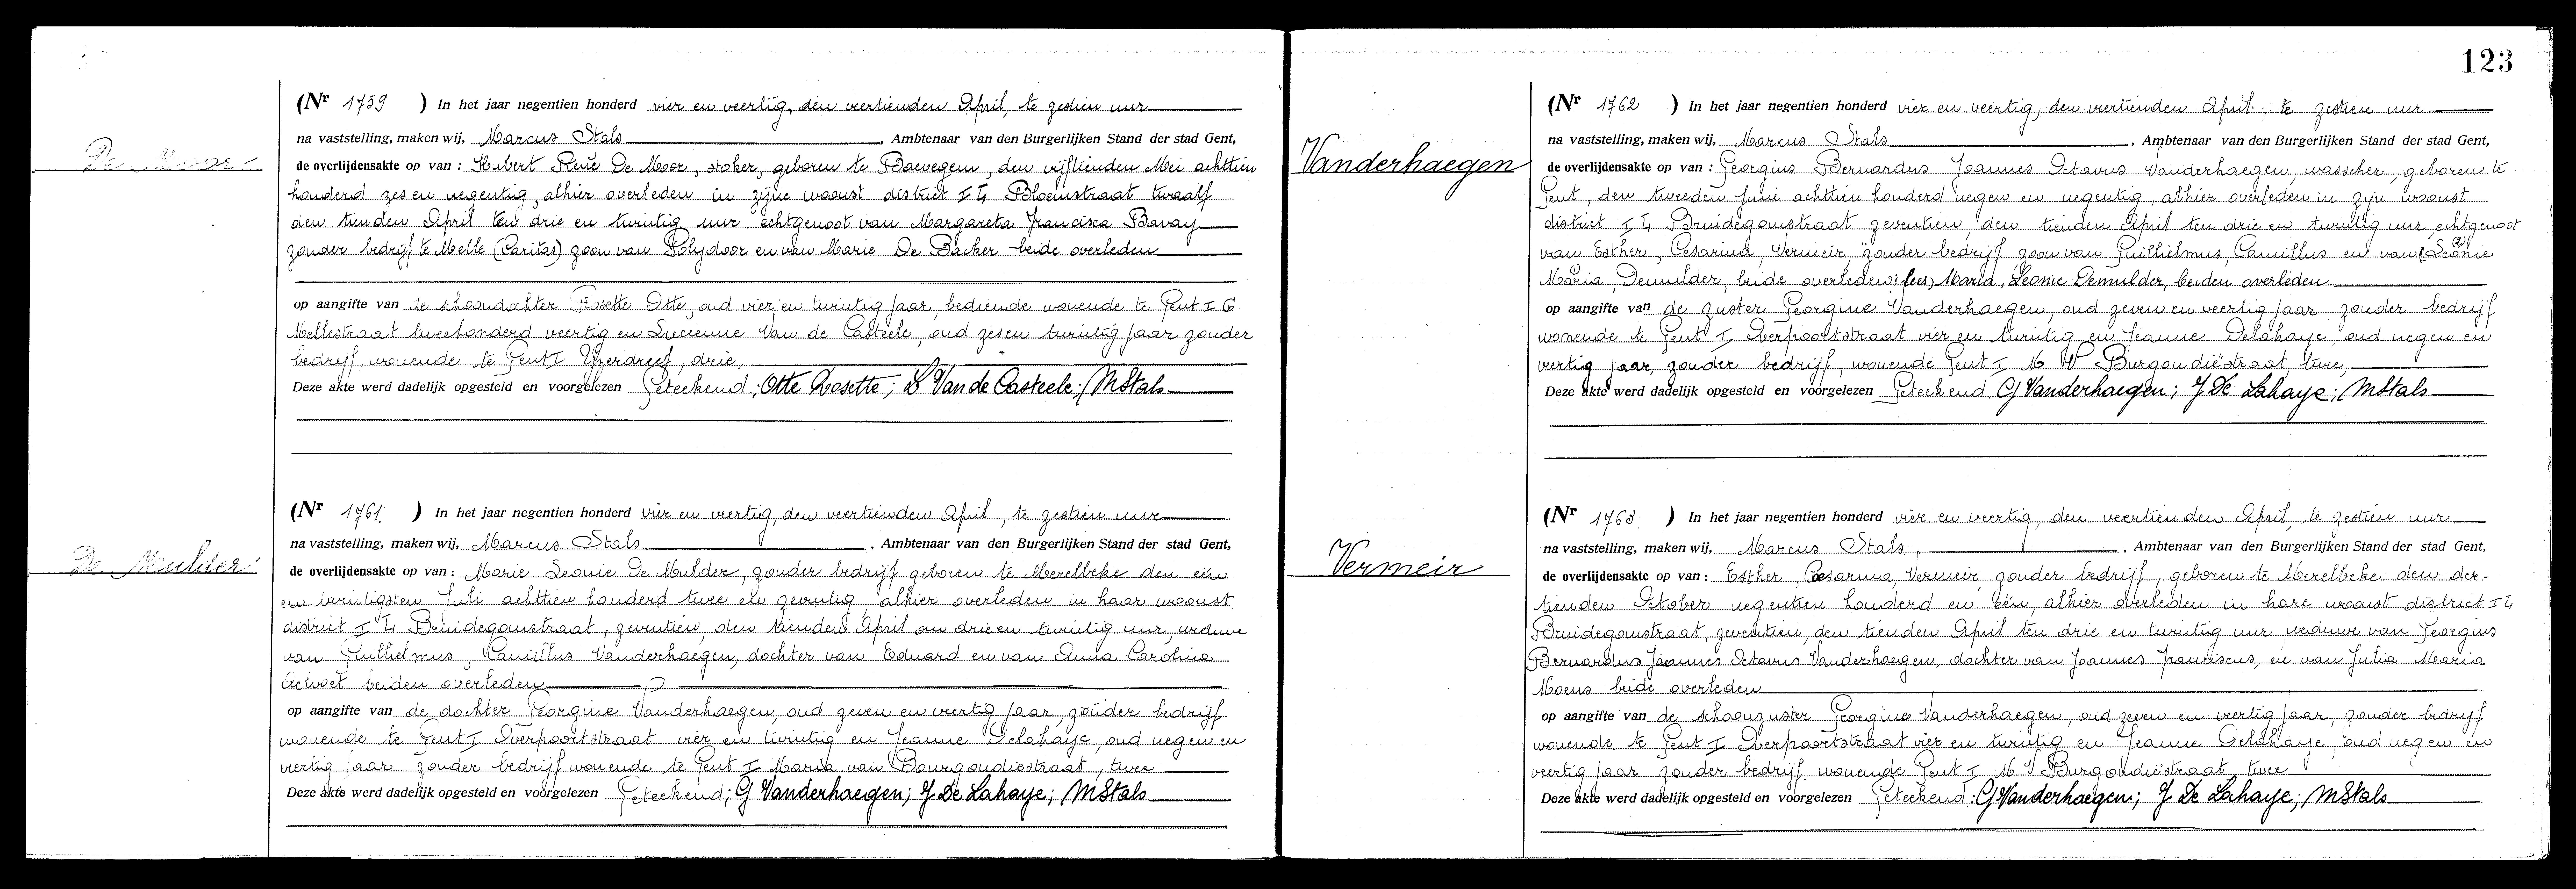 De Moor
(Nr 1759 ) In het jaar negentien honderd vier en veertig, den veertienden April, te zestien uur
na vaststelling, maken wij, Marcus Stals, Ambtenaar van den Burgerlijken Stand der stad Gent,
de overlijdensakte op van : Hubert René De Moor, stoker, geboren te Baevegem, den vijftienden Mei achttien
honderd zes en negentig, alhier overleden in zijne woonst district I 4 Bloemstraat twaalf
den tienden April ten drie en twintig uur echtgenoot van Margareta Francisca Bavay
zonder bedrijf, te Melle (Caritas) zoon van Polydoor en van Marie De Backer beide overleden
op aangifte van de schoondochter Rosette Otte, oud vier en twintig jaar, bediende wonende te Gent I G
Mellestraat tweehonderd veertig en Lucienne Van de Casteele, oud zes en twintig jaar zonder
bedrijf wonende te Gent I Yzerdreef, drie,
Deze akte werd dadelijk opgesteld en voorgelezen Geteekend ; Otte Rosette ; L Van de Casteele ; MStals
De Mulder
(Nr 1761. ) In het jaar negentien honderd vier en veertig, den veertienden April, te zestien uur
na vaststelling, maken wij, Marcus Stals, Ambtenaar van den Burgerlijken Stand der stad Gent,
de overlijdensakte op van : Marie Leonie De Mulder, zonder bedrijf geboren te Merelbeke den één
en twintigsten Juli achttien honderd twee en zeventig alhier overleden in haar woonst
district I 4 Bruidegomstraat, zeventien, den tienden April om drie en twintig uur, weduwe
van Guilhelmus, Camillus Vanderhaegen, dochter van Eduard en van Anna Carolina
beiden overleden
op aangifte van de dochter Georgine Vanderhaegen, oud zeven en veertig jaar, zonder bedrijf
wonende te Gent I Overpoortstraat vier en twintig en Jeanne Delahaye, oud negen en
veertig jaar zonder bedrijf wonende te Gent I Maria van Bourgondiestraat, twee
Deze akte werd dadelijk opgesteld en voorgelezen Geteekend ; G Vanderhaegen ; J De Lahaye ; MStals
123
Vanderhaegen
(Nr 1762 ) In het jaar negentien honderd vier en veertig, den veertienden April, te zestien uur
na vaststelling, maken wij, Marcus Stals, Ambtenaar van den Burgerlijken Stand der stad Gent,
de overlijdensakte op van : Georgius Bernardus Joannes Octavus Vanderhaegen, wasscher, geboren te
Gent, den tweeden Juni achttien honderd negen en negentig, alhier overleden in zijn woonst
district I 4 Bruidegomstraat zeventien, den tienden April ten drie en twintig uur, echtgenoot
van Esther, Cesarina, Vermeir, zonder bedrijf zoon van Guilhelmus, Camillus en van Leonie
Maria, Demulder, beide overleden: (lees) Maria, Leonie Demulder, beiden overleden.
op aangifte van de zuster Georgine Vanderhaegen, oud zeven en veertig jaar zonder bedrijf
wonende te Gent I Overpoortstraat vier en twintig en Jeanne Delahaye, oud negen en
veertig jaar, zonder bedrijf, wonende Gent I M V Burgondiëstraat twee,
Deze akte werd dadelijk opgesteld en voorgelezen Geteekend G Vanderhaegen ; J De Lahaye ; MStals
Vermeir
(Nr 1763. ) In het jaar negentien honderd vier en veertig, den veertienden April, te zestien uur
na vaststelling, maken wij, Marcus Stals, Ambtenaar van den Burgerlijken Stand der stad Gent,
de overlijdensakte op van : Esther, Cesarina, Vermeir, zonder bedrijf, geboren te Merelbeke den der-
tienden October negentien honderd en één, alhier overleden in hare woonst district I 4
Bruidegomstraat, zeventien, den tienden April ten drie en twintig uur weduwe van Georgius
Bernardus Joannes Octavus Vanderhaegen, dochter van Joannes Franciscus, en van Julia Maria
Moens beide overleden
op aangifte van de schoonzuster Georgine Vanderhaegen, oud zeven en veertig jaar, zonder bedrijf
wonende te Gent I Overpoortstraat vier en twintig en Jeanne Delahaye, oud negen en
veertig jaar zonder bedrijf wonende Gent I M V Burgondiëstraat twee
Deze akte werd dadelijk opgesteld en voorgelezen Geteekend : G Vanderhaegen ; J De Lahaye ; MStals